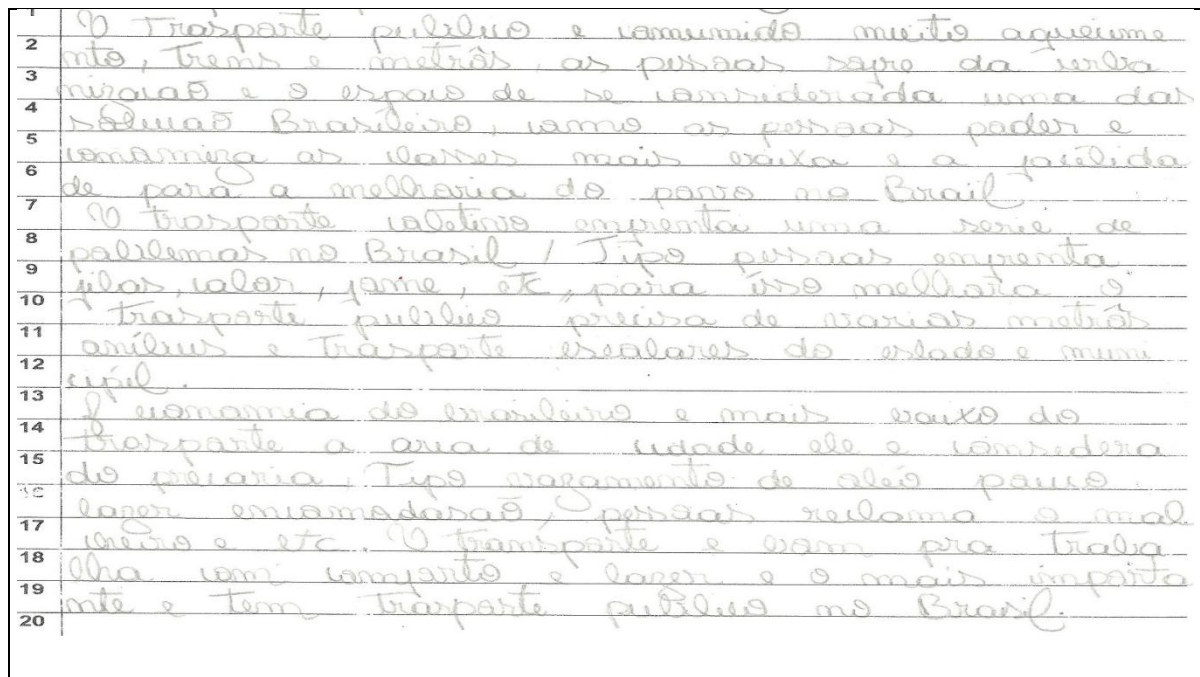 1 O Trasporte publico e comumido muito aqueicime
2 nto, trens e metrôs, as pessoas sofre da urba
3 nizaçaõ e o espaço de se considerada uma das
4 soluçaõ Brasileiro, como as pessoas poder e
5 conomiza as classes mais baixa e a facilida
6 de para a melhoria do povo no Brail
7 O trasporte coletivo emprenta uma serie de
8 poblemas no Brasil / Tipo pessoas emprenta
9 filas, calor, fome, etc, para isso melhora o
10 trasporte publico precisa de varios metrôs
11 onibus e trasporte escolares do estado e muni
12 cipil.
13 A economia do brasileiro e mais baixo do
14 trasporte a aria de cidade ele e considera
15 do precaria, Tipo vazamento de oleo pouco
16 lazer encomodasaõ, pessoas reclama o mal
17 cheiro e etc. O transporte e bom pra traba
18 lha com comforto e lazer e o mais importa
19 nte e tem trasporte publico no Brasil.
20